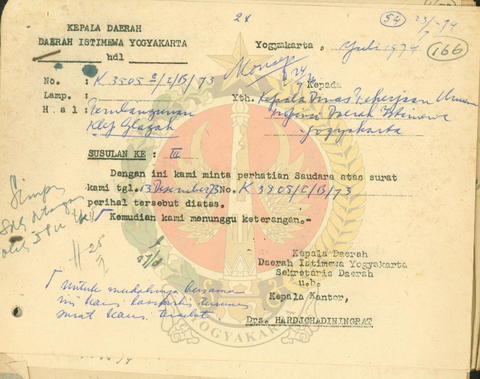 KEPALA DAERAH
DAERAH ISTIMEWA YOGYAKARTA
hdl
24
54
23/7-74
166
Yogyakarta, Juli 1974
No. : K 3905 I/B/73
Kepada
Lamp. :
Yth. Kepala Dinas Pekerjaan Umum
H a l : Pembangunan
Propinsi Daerah Istimewa
Klep Glagah
Yogyakarta
SUSULAN KE : III
Dengan ini kami minta perhatian Saudara atas surat
kami tgl. 13 Desember 73 No. K 3905/I/B/73
perihal tersebut diatas.
Kemudian kami menunggu keterangan.-
Kepala Daerah
Daerah Istimewa Yogyakarta
Sekretaris Daerah
u.b.
Kepala Kantor,
Drs. HARDJOHADININGRAT
Simpan
Untuk mudahnya bersama
ini kami
surat kami tersebut.
YOGYAKARTA